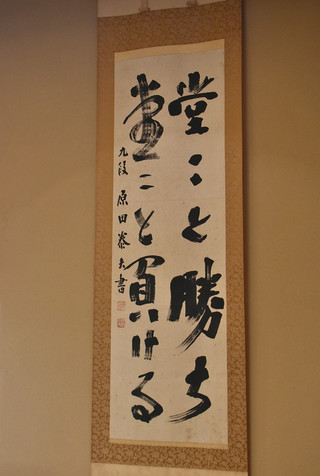 堂々と勝ち
堂々と負ける
九段 原田泰夫書